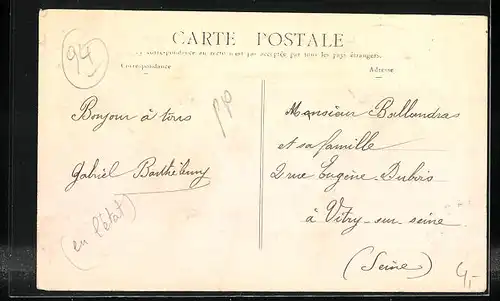 CARTE POSTALE
La correspondance au recto n'est pas acceptée par tous les pays étrangers.
Correspondance
Adresse
94
pp
Bonjour à tous
Gabriel Barthélemy
(en l'état)
Monsieur Ballandras
et sa famille
2 rue Eugène Dubois
à Vitry-sur-seine
(Seine)
4,-